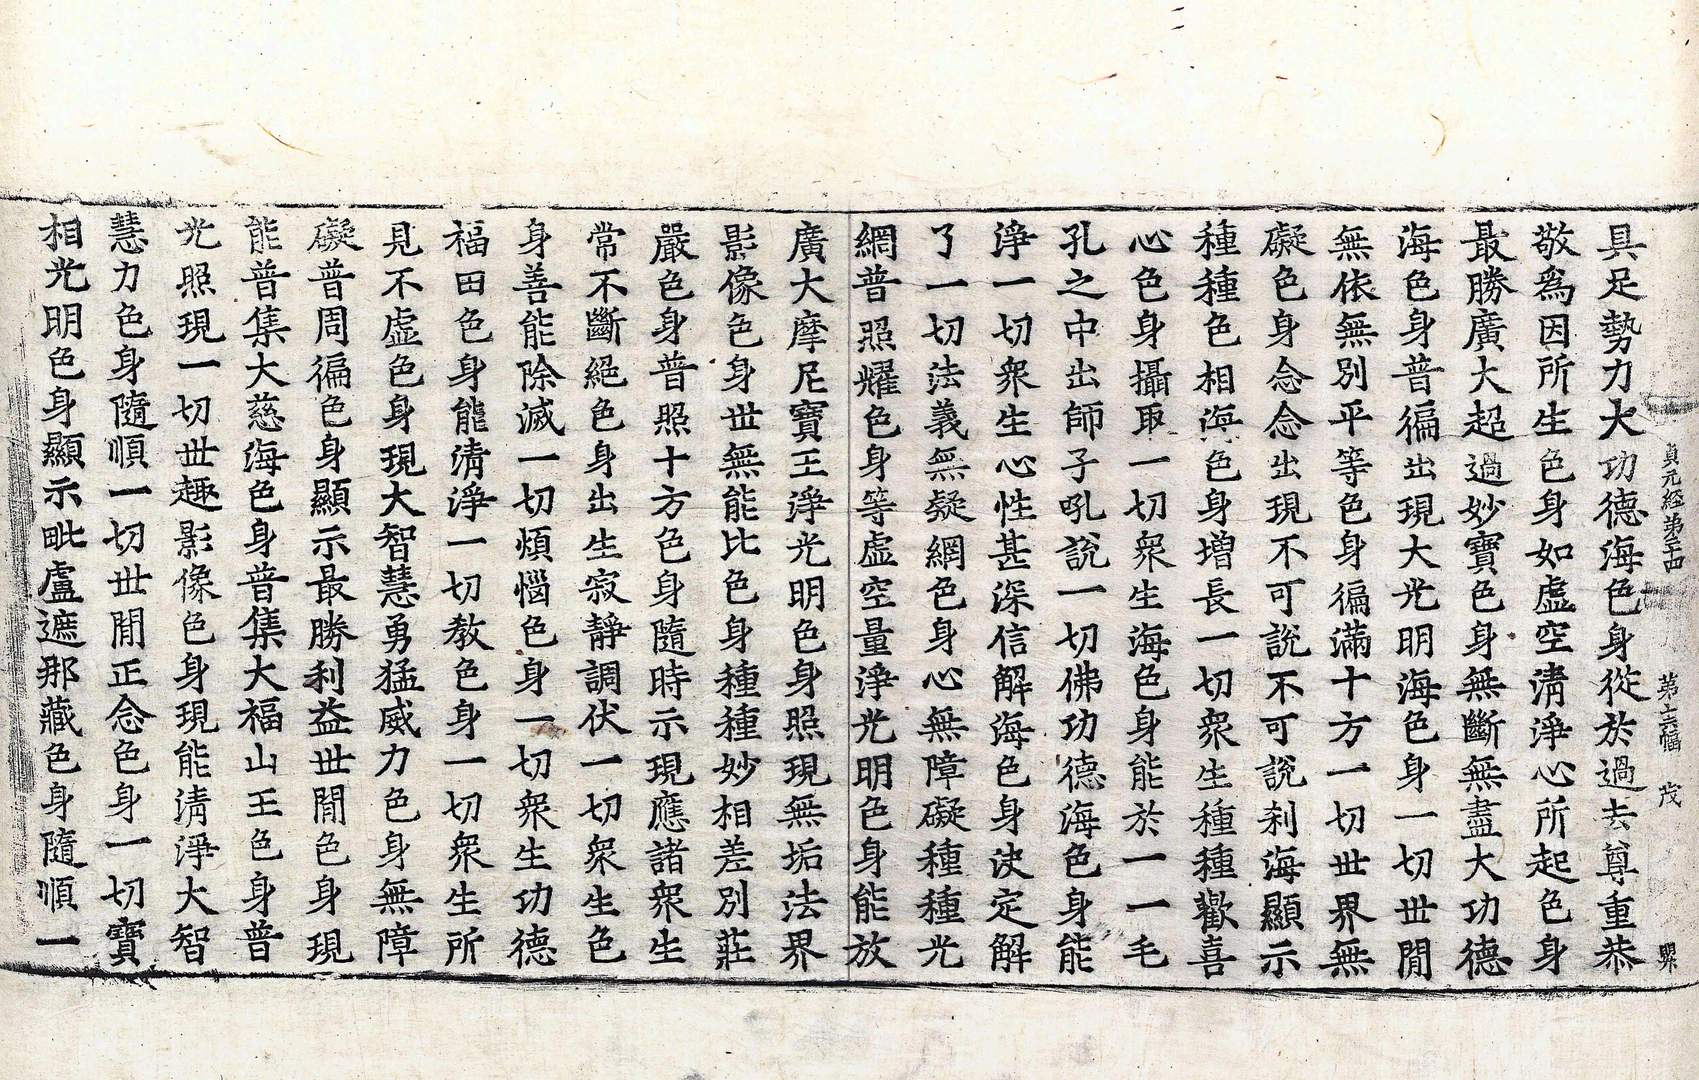 貞元經第二十四 第十六幅 茂
具足勢力大功德海色身從於過去尊重恭
敬爲因所生色身如虛空淸淨心所起色身
最勝廣大超過妙寶色身無斷無盡大功德
海色身普徧出現大光明海色身一切世間
無依無別平等色身徧滿十方一切世界無
礙色身念念出現不可說不可說刹海顯示
種種色相海色身增長一切衆生種種歡喜
心色身攝取一切衆生海色身能於一一毛
孔之中出師子吼說一切佛功德海色身能
淨一切衆生心性甚深信解海色身決定解
了一切法義無礙網色身心無障礙種種光
網普照耀色身等虛空量淨光明色身能放
廣大摩尼寶王淨光明色身照現無垢法界
影像色身世無能比色身種種妙相差別莊
嚴色身普照十方色身隨時示現應諸衆生
常不斷絕色身出生寂靜調伏一切衆生色
身善能除滅一切煩惱色身一切衆生功德
福田色身能淸淨一切教色身一切衆生所
見不虛色身現大智慧勇猛威力色身無障
礙普周徧色身顯示最勝利益世間色身現
能普集大慈海色身普集大福山王色身普
光照現一切世趣影像色身現能淸淨大智
慧力色身隨順一切世間正念色身一切寶
相光明色身顯示毗盧遮那藏色身隨順一